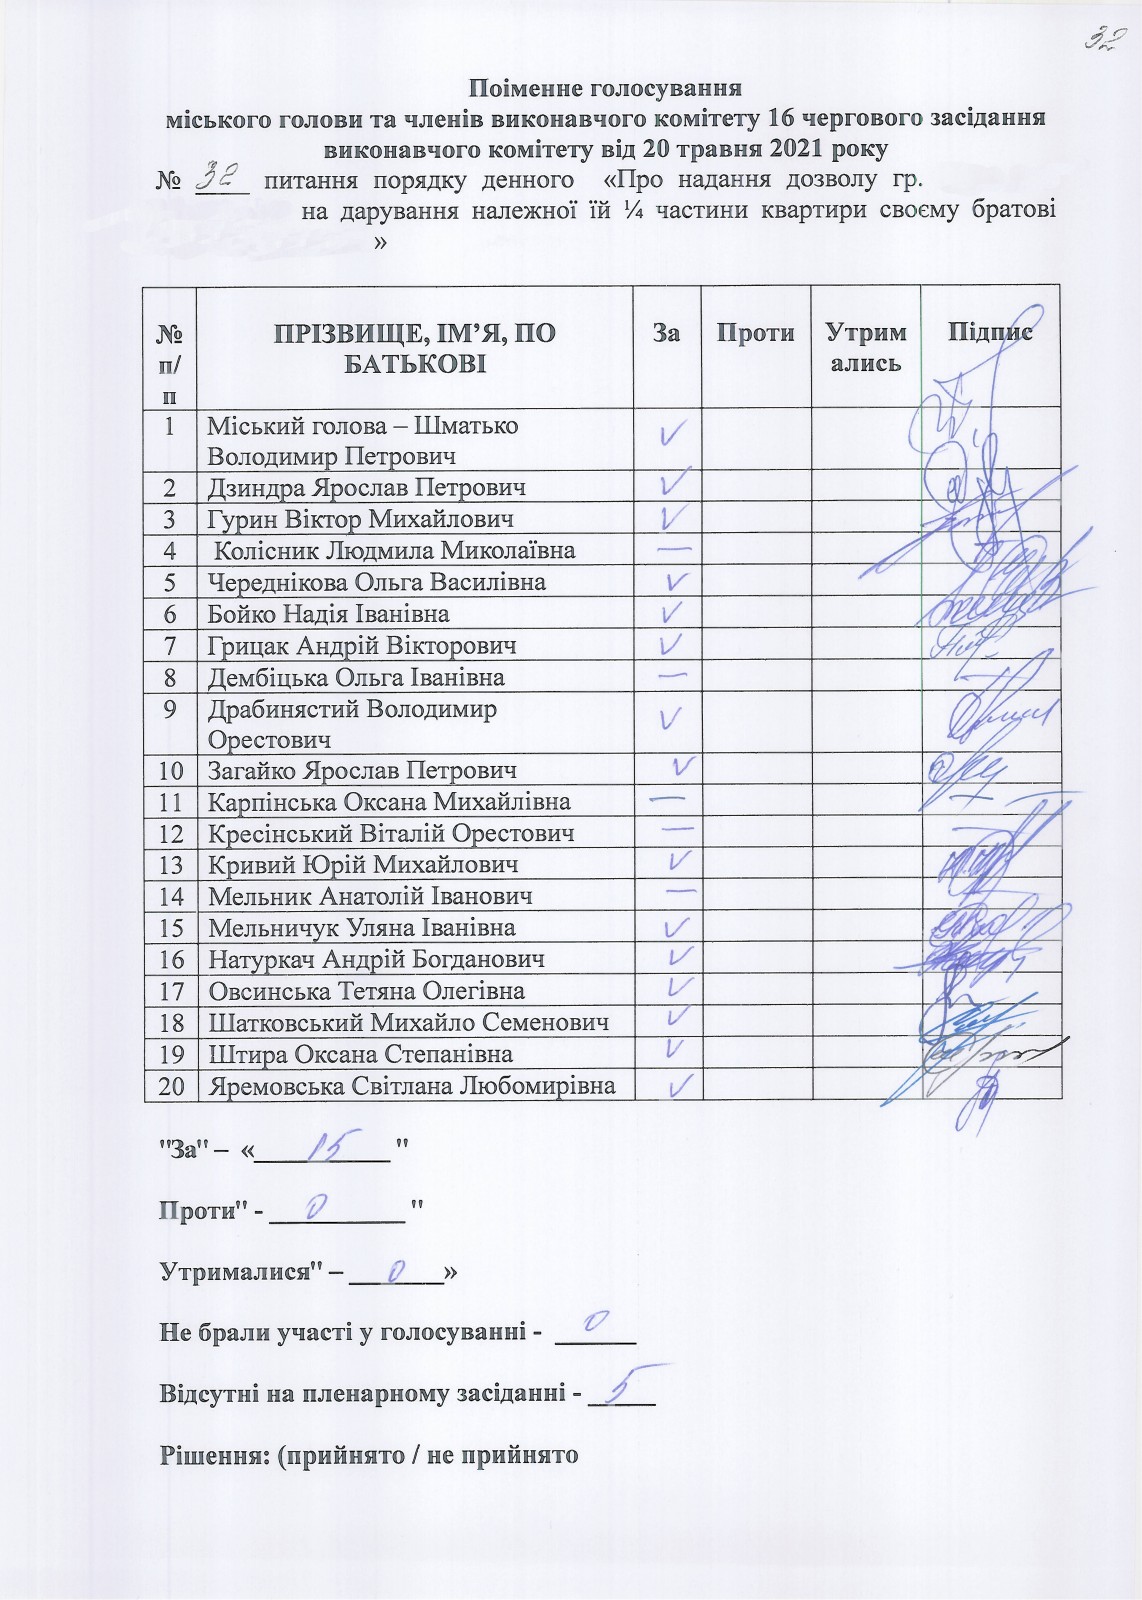 32
Поіменне голосування
міського голови та членів виконавчого комітету 16 чергового засідання
виконавчого комітету від 20 травня 2021 року
№ 32 питання порядку денного «Про надання дозволу гр.
на дарування належної їй ¼ частини квартири своєму братові
»
№ п/п ПРІЗВИЩЕ, ІМ’Я, ПО БАТЬКОВІ За Проти Утримались Підпис
1 Міський голова – Шматько
Володимир Петрович
2 Дзиндра Ярослав Петрович
3 Гурин Віктор Михайлович
4 Колісник Людмила Миколаївна —
5 Череднікова Ольга Василівна
6 Бойко Надія Іванівна
7 Грицак Андрій Вікторович
8 Дембіцька Ольга Іванівна —
9 Драбинястий Володимир
Орестович
10 Загайко Ярослав Петрович
11 Карпінська Оксана Михайлівна —
12 Кресінський Віталій Орестович —
13 Кривий Юрій Михайлович
14 Мельник Анатолій Іванович —
15 Мельничук Уляна Іванівна
16 Натуркач Андрій Богданович
17 Овсинська Тетяна Олегівна
18 Шатковський Михайло Семенович
19 Штира Оксана Степанівна
20 Яремовська Світлана Любомирівна
"За" – « 15 "
Проти" - 0 "
Утрималися" – 0 »
Не брали участі у голосуванні - 0
Відсутні на пленарному засіданні - 5
Рішення: (прийнято / не прийнято